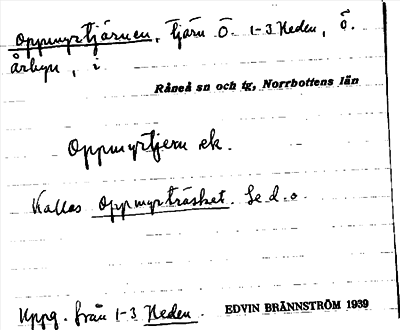 Oppmyrtjärnen, Tjärn Ö. 1-3 Heden, ö.
årbyn, i
Råneå sn och tg, Norrbottens län
Oppmyrtjern ek.
Kallas Oppmyrträsket. Se d.o.
Uppg. från 1-3 Heden. EDVIN BRÄNNSTRÖM 1939